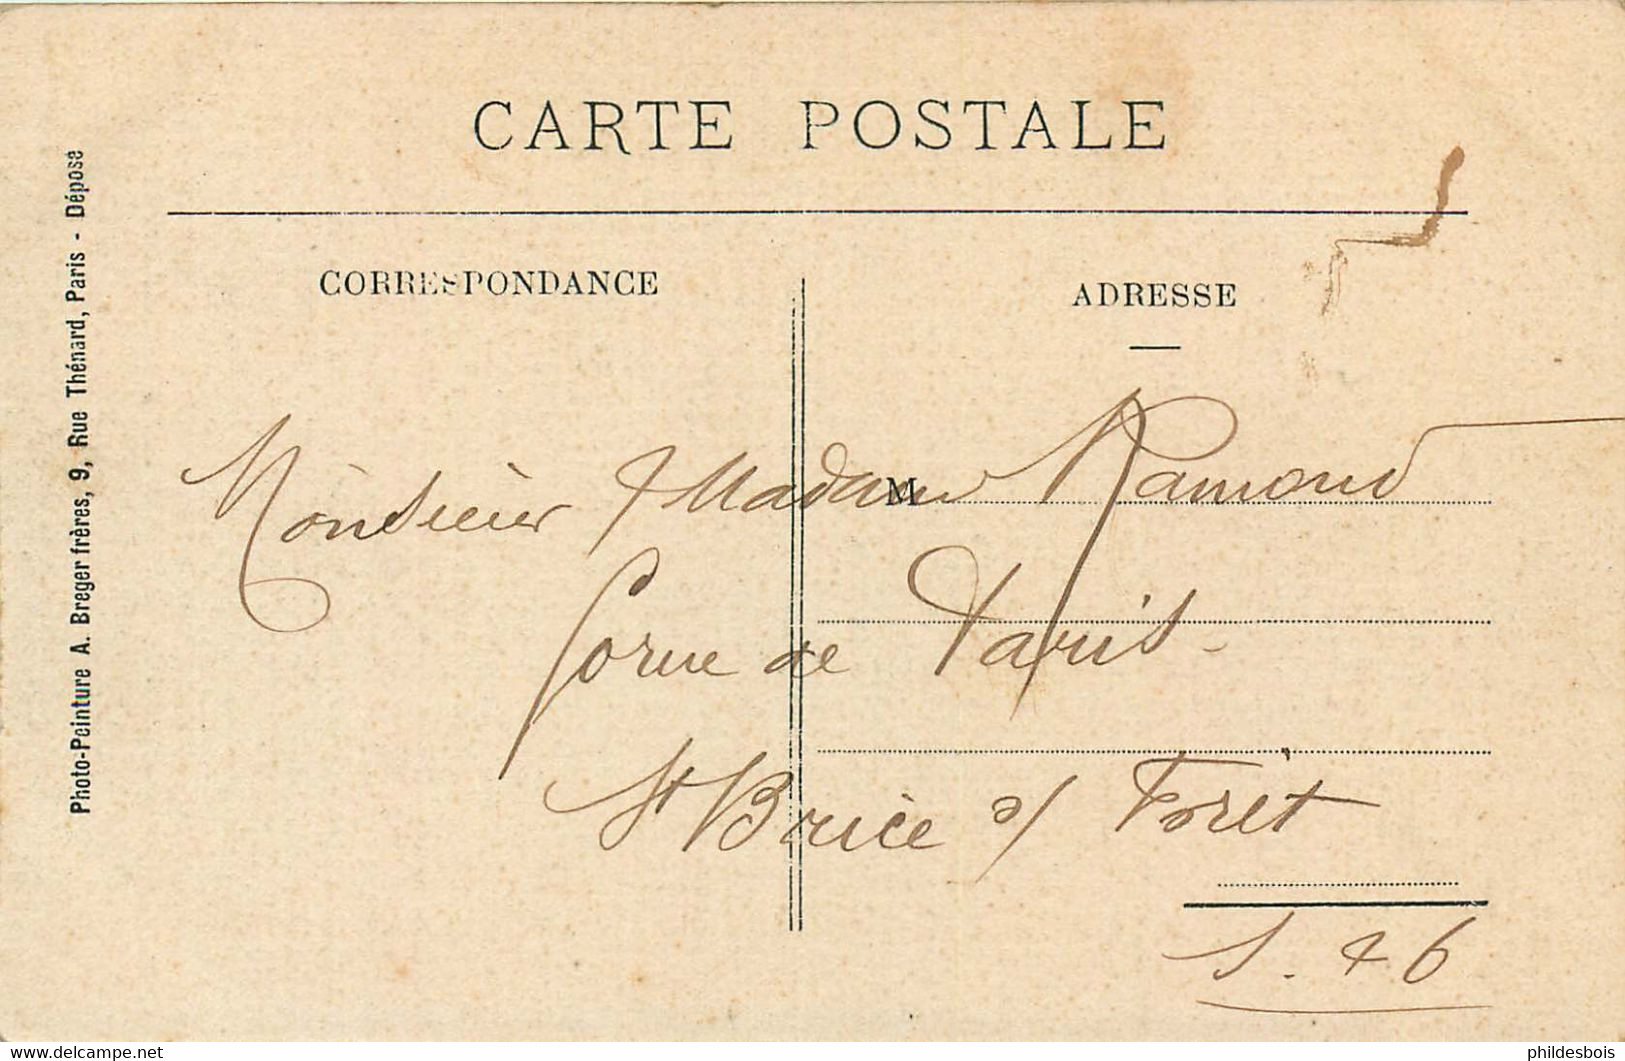 CARTE POSTALE
CORRESPONDANCE
ADRESSE
M
Monsieur & Madame Ramond
Corne de Paris -
St Brice s/ Forêt
S. & O
Photo-Peinture A. Breger frères, 9, Rue Thénard, Paris - Déposé
www.delcampe.net
phildesbois